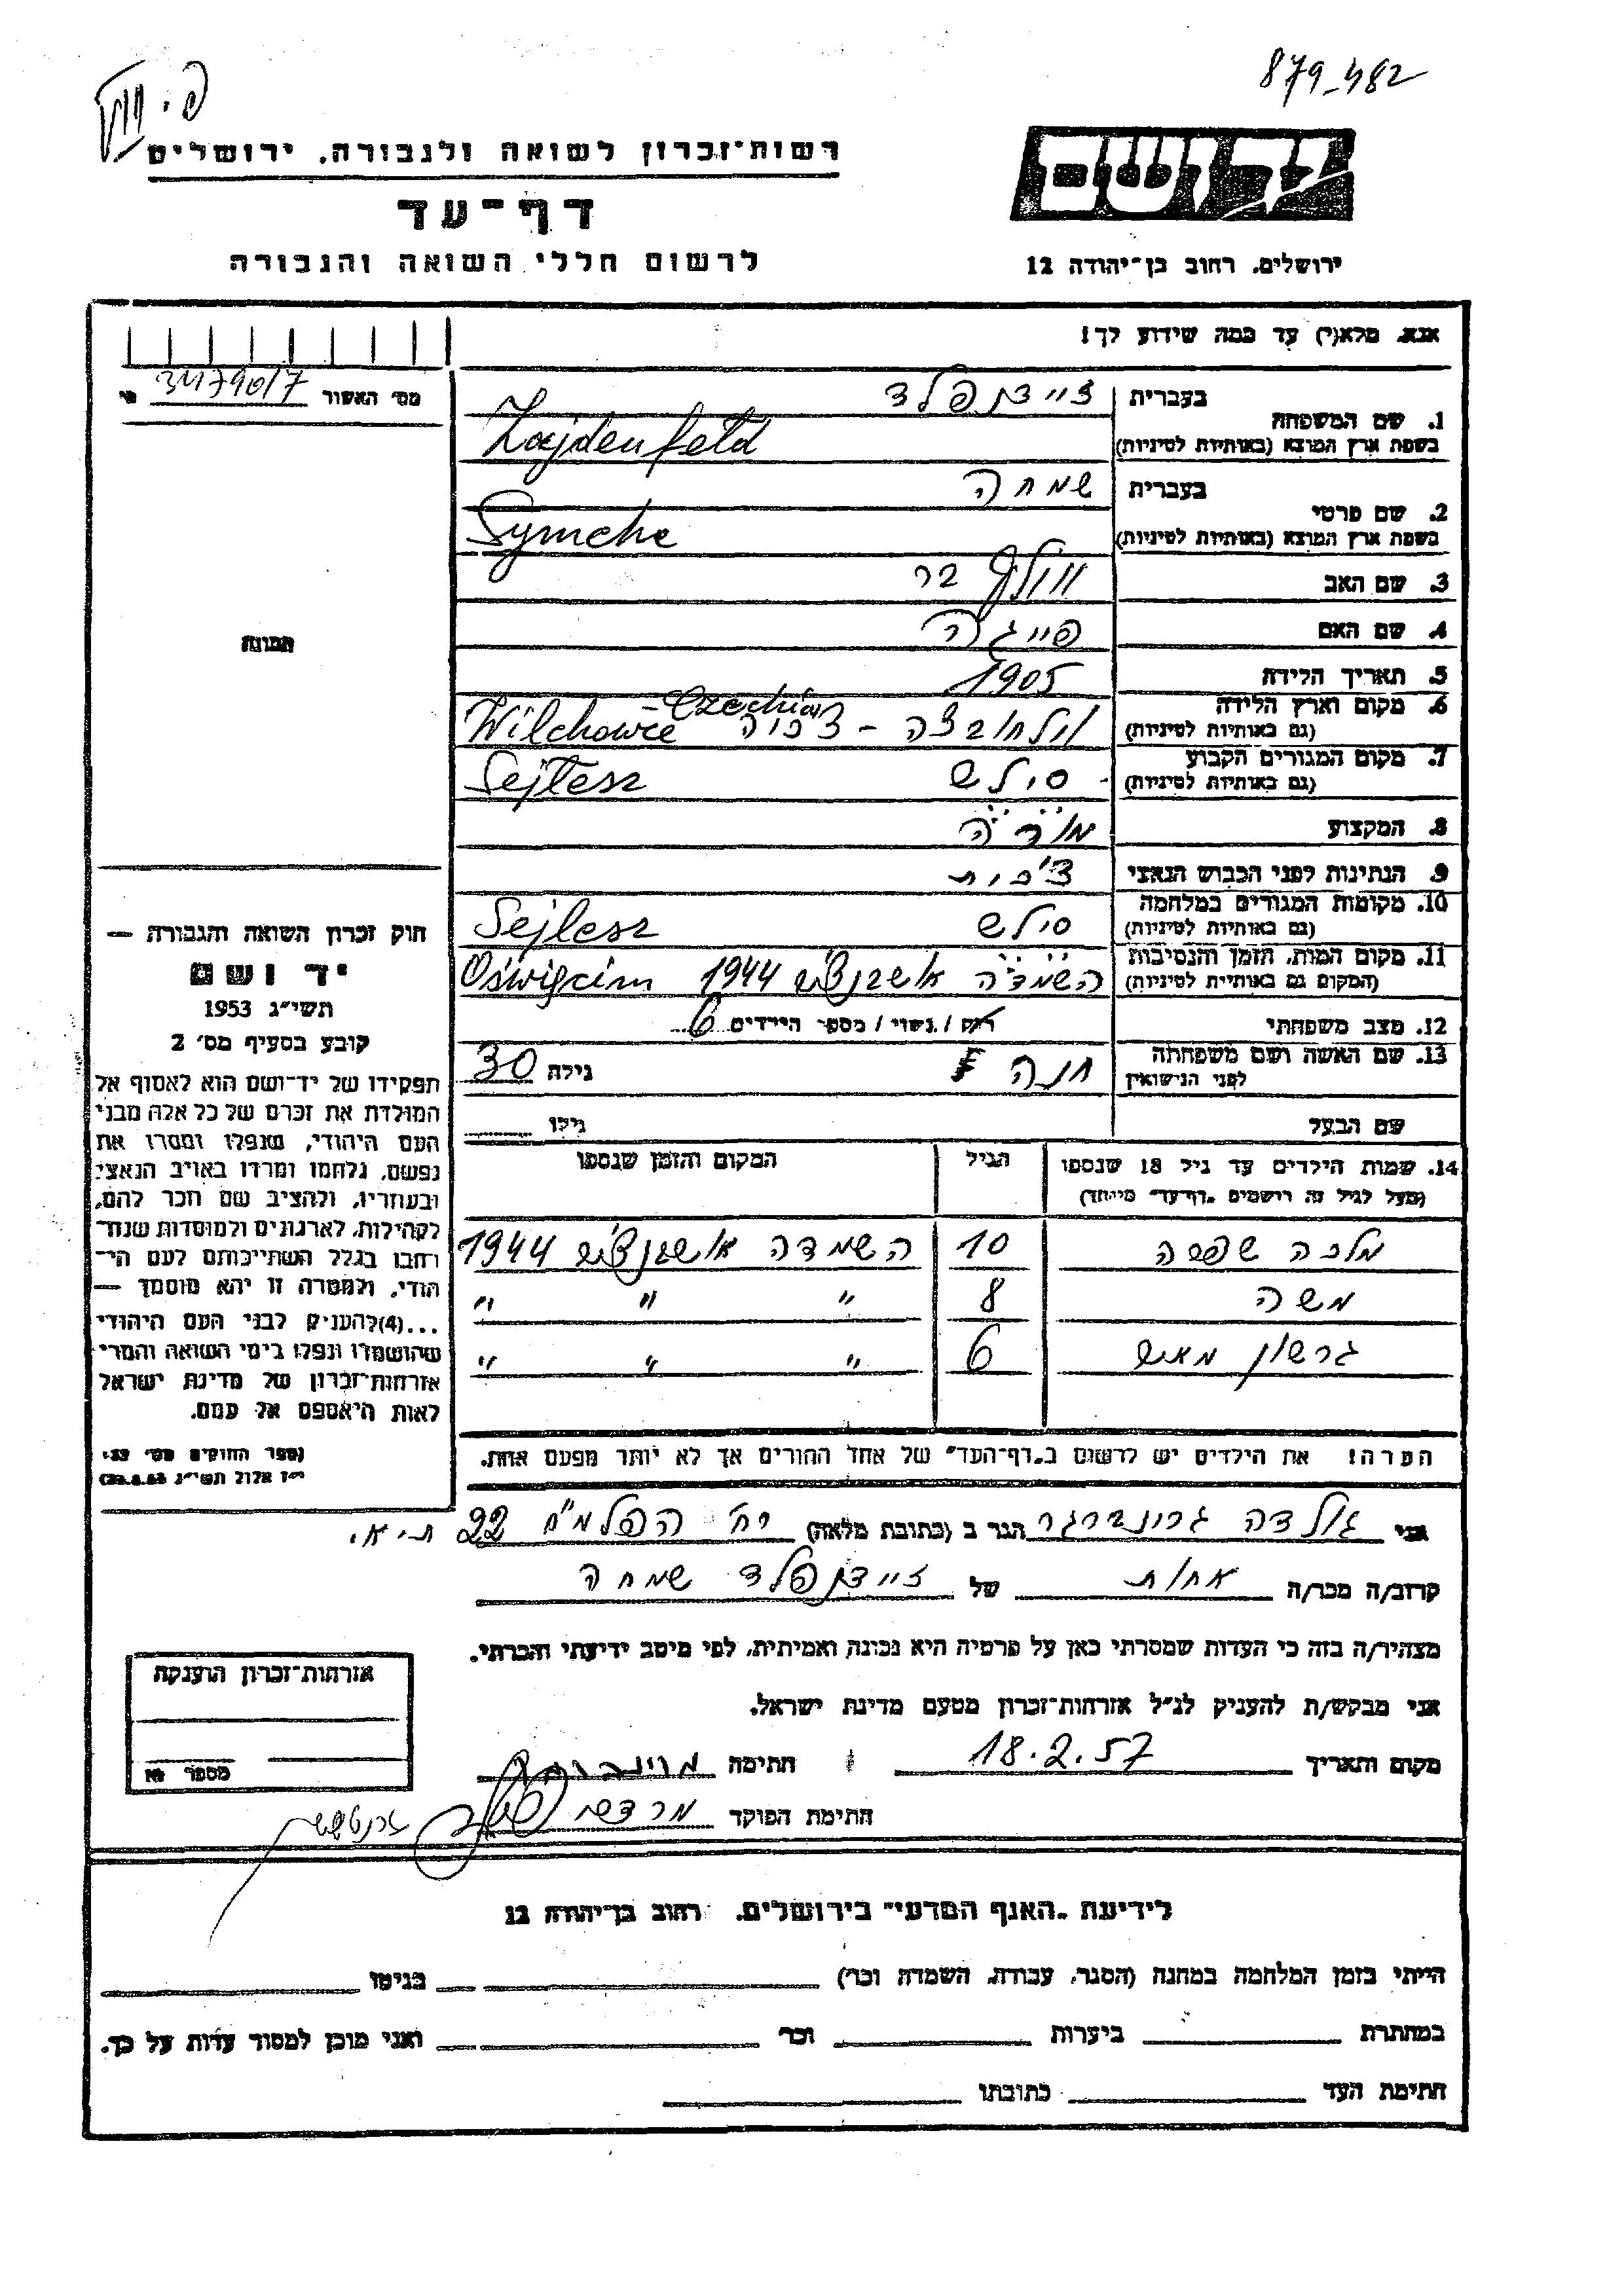 879-482
רשות־זכרון לשואה ולגבורה, ירושלים
דף־עד
לרשום חללי השואה והגבורה
יד ושם
ירושלים, רחוב בן־יהודה 12
אנא, מלא(י) עד כמה שידוע לך!
מס' האשור
1. שם המשפחה בעברית זיידנפלד
בשפת ארץ המוצא (באותיות לטיניות) Zajdenfeld
2. שם פרטי בעברית שמחה
בשפת ארץ המוצא (באותיות לטיניות) Symche
3. שם האב וולף בר
4. שם האם פייגה
5. תאריך הלידה 1905
6. מקום וארץ הלידה (גם באותיות לטיניות) וילחובצה - צ'כיה Wilchowce - Czechia
7. מקום המגורים הקבוע (גם באותיות לטיניות) סילש Sejlesz
8. המקצוע מורה
9. הנתינות לפני הכבוש הנאצי צ'כית
10. מקומות המגורים במלחמה (גם באותיות לטיניות) סילש Sejlesz
11. מקום המות, הזמן והנסיבות (המקום גם באותיות לטיניות) השמדה אושבנצ'ים 1944 Oświęcim
12. מצב משפחתי רווק / נשוי / מספר הילדים 6
13. שם האשה ושם משפחתה לפני הנישואין חנה גילה 30
שם הבעל גילו
14. שמות הילדים עד גיל 18 שנספו הגיל המקום והזמן שנספו
(מעל לגיל זה רושמים "דף־עד" מיוחד)
מלכה שפרה 10 השמדה אושבנצ'ים 1944
משה 8 " " "
גרשון 6 " " "
תמונה
חוק זכרון השואה והגבורה —
יד ושם
תשי"ג 1953
קובע בסעיף מס' 2
תפקידו של יד־ושם הוא לאסוף אל
המולדת את זכרם של כל אלה מבני
העם היהודי, שנפלו ומסרו את
נפשם, נלחמו ומרדו באויב הנאצי
ובעוזריו, ולהציב שם וזכר להם,
לקהילות, לארגונים ולמוסדות שנח־
רבו בגלל השתייכותם לעם הי־
הודי, ולמטרה זו יהא מוסמך —
...(4) להעניק לבני העם היהודי
שהושמדו ונפלו בימי השואה והמרי
אזרחות־זכרון של מדינת ישראל
לאות היאספם אל עמם.
(ספר החוקים מס' 132,
י"ז אלול תשי"ג 28.8.53)
הערה! את הילדים יש לרשום ב"דף־העד" של אחד ההורים אך לא יותר מפעם אחת.
אני גולדה גרינברגר הגר ב (כתובת מלאה) רח' הפלמ"ח 22 ת"א.
קרוב/ה מכר/ה אחות של זיידנפלד שמחה
מצהיר/ה בזה כי העדות שמסרתי כאן על פרטיה היא נכונה ואמיתית, לפי מיטב ידיעתי והכרתי.
אני מבקש/ת להעניק לנ"ל אזרחות־זכרון מטעם מדינת ישראל.
מקום ותאריך 18.2.57 חתימה
חתימת הפוקד
אזרחות־זכרון הוענקה
מספר
לידיעת "האגף המדעי" בירושלים, רחוב בן־יהודה 12
הייתי בזמן המלחמה במחנה (הסגר, עבודה, השמדה וכו') בגיטו
במחתרת ביערות וכו' ואני מוכן למסור עדות על כך.
חתימת העד כתובתו